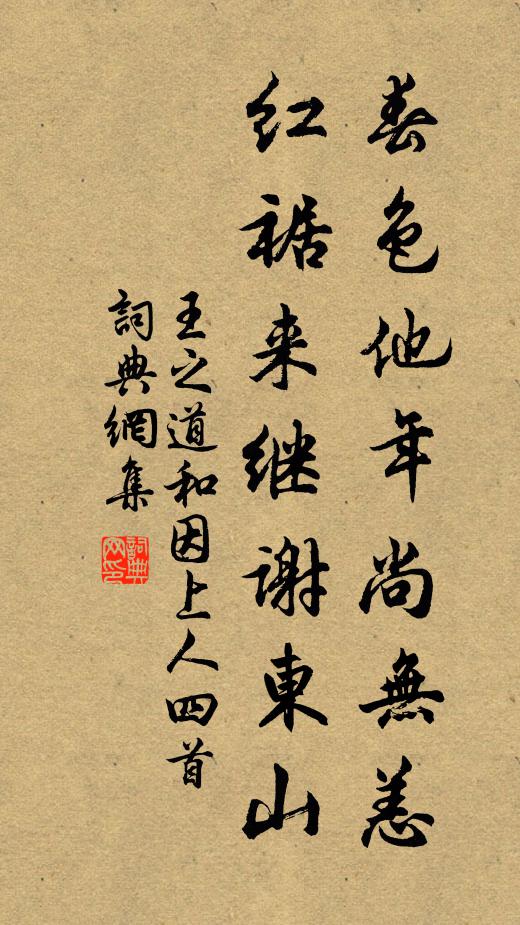 春色他年尚無恙
红裾来继謝東山
王之道和因上人四首
詞典網集
詞典網印